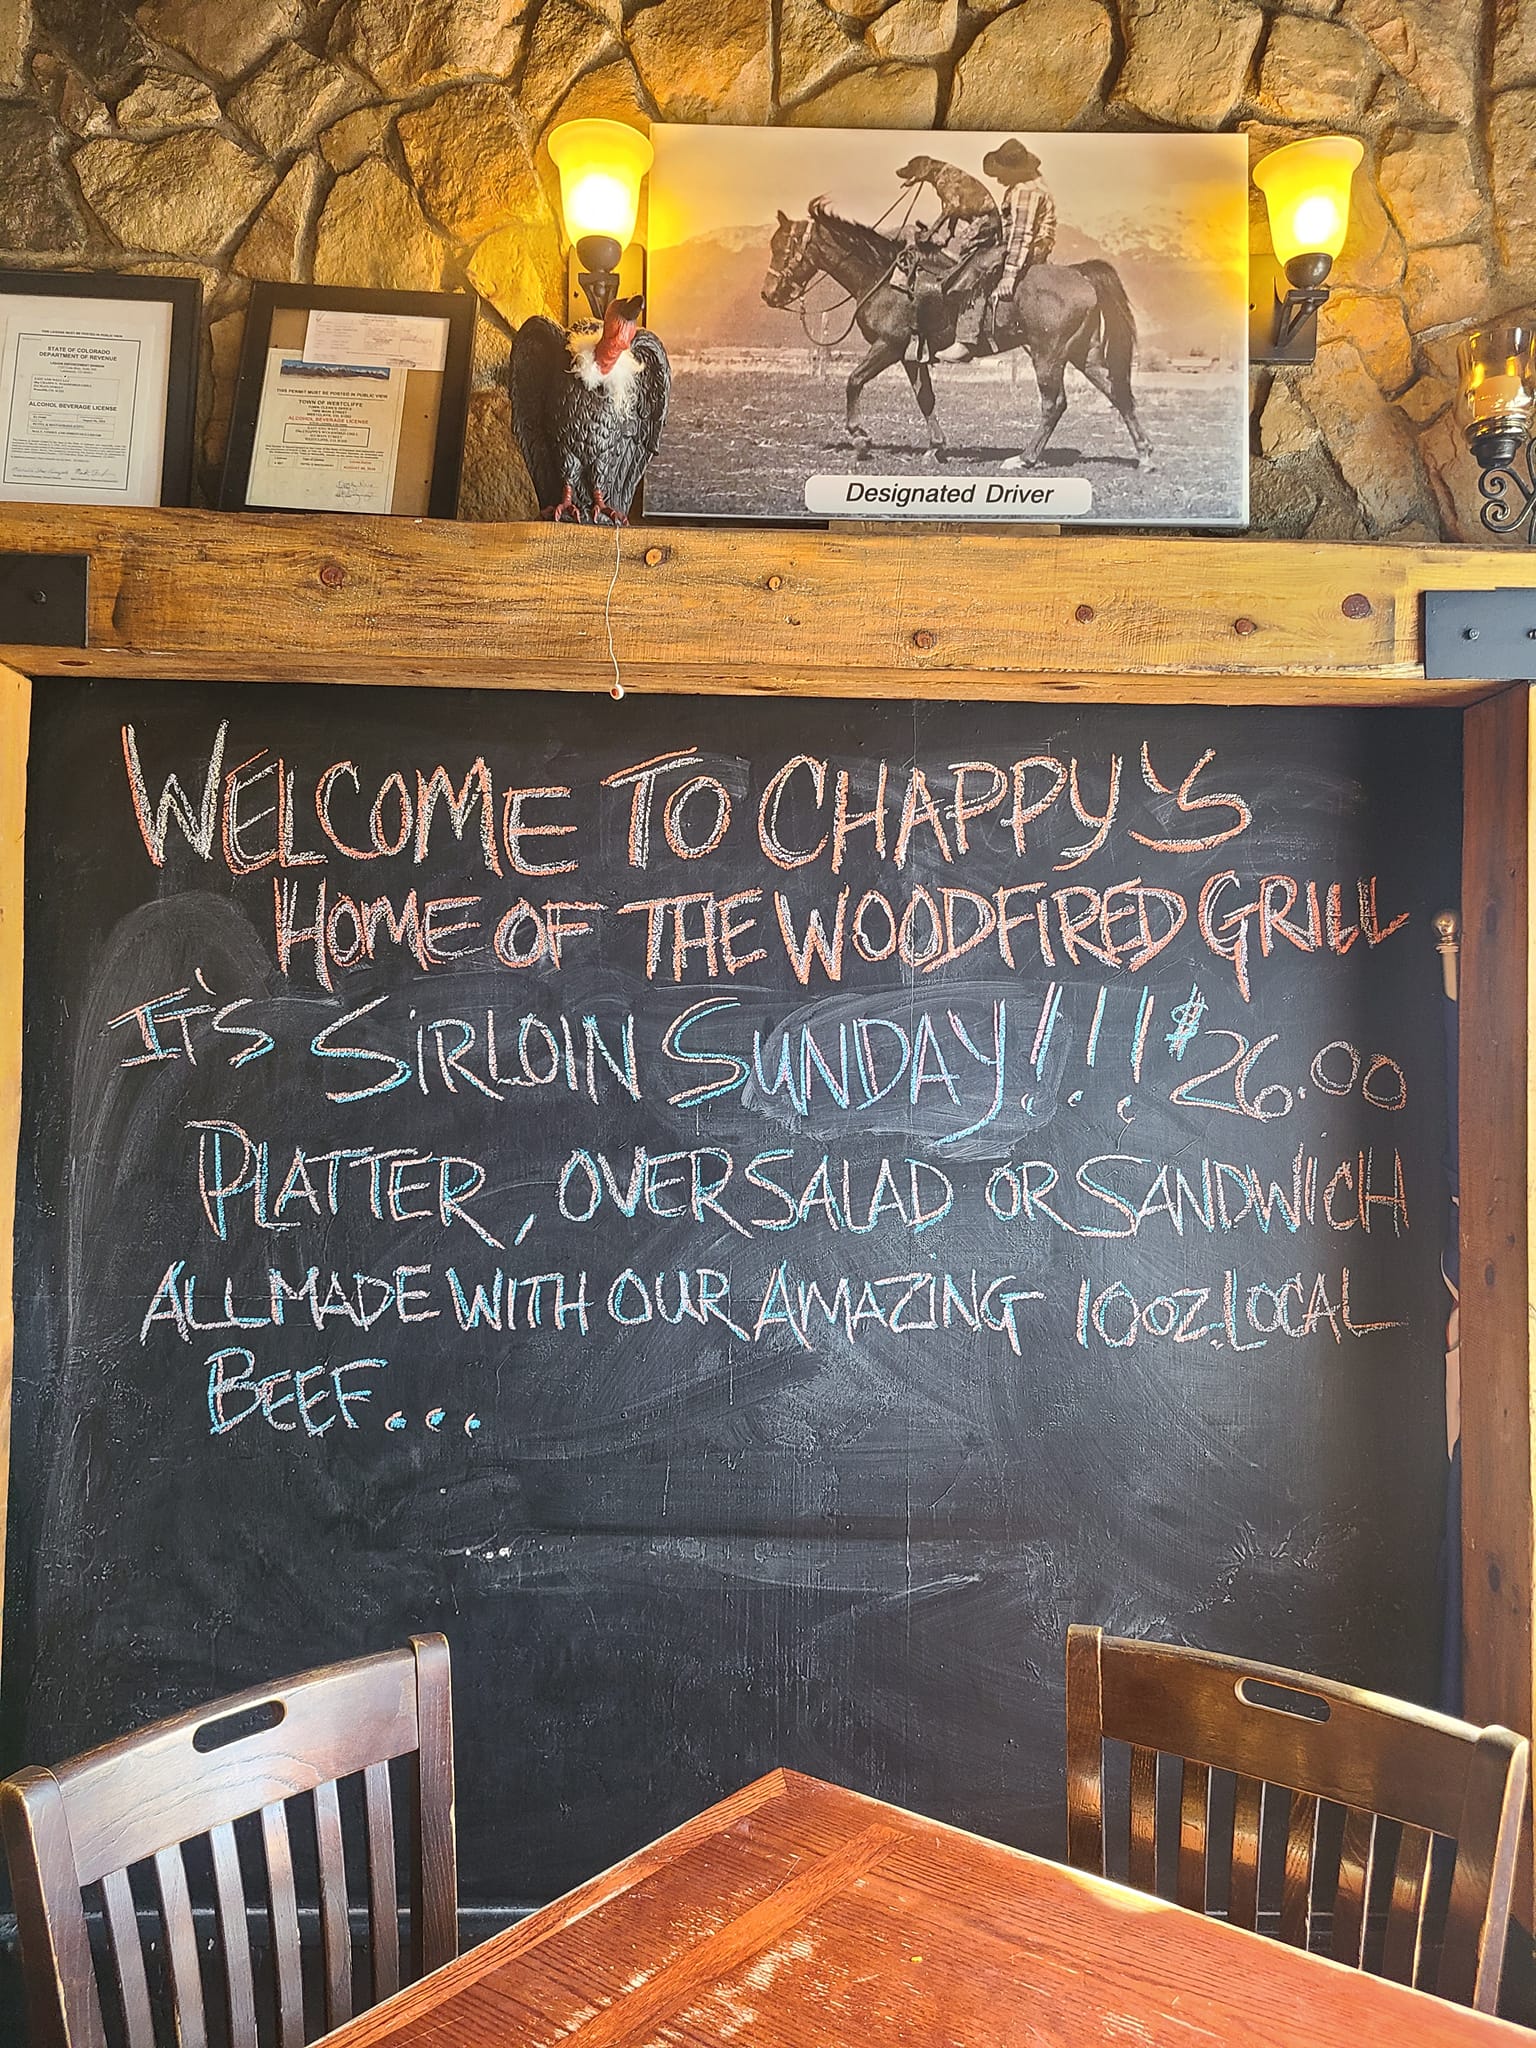 THIS LICENSE MUST BE POSTED IN PUBLIC VIEW
STATE OF COLORADO
DEPARTMENT OF REVENUE
ALCOHOL BEVERAGE LICENSE
THIS PERMIT MUST BE POSTED IN PUBLIC VIEW
TOWN OF WESTCLIFFE
ALCOHOL BEVERAGE LICENSE
Designated Driver
WELCOME TO CHAPPY'S
HOME OF THE WOODFIRED GRILL
IT'S SIRLOIN SUNDAY!!! $26.00
PLATTER, OVER SALAD OR SANDWICH
ALL MADE WITH OUR AMAZING 10OZ. LOCAL
BEEF...